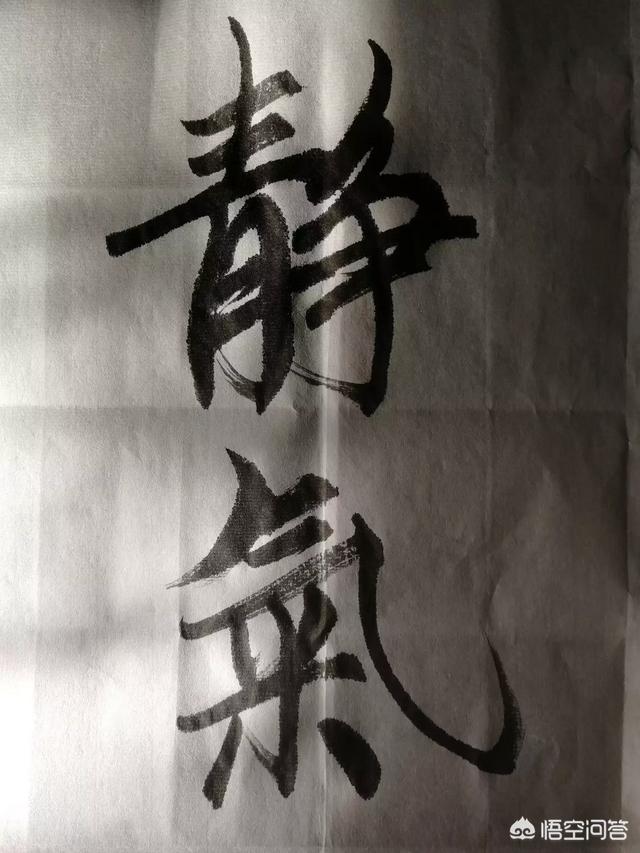 静氣
悟空问答